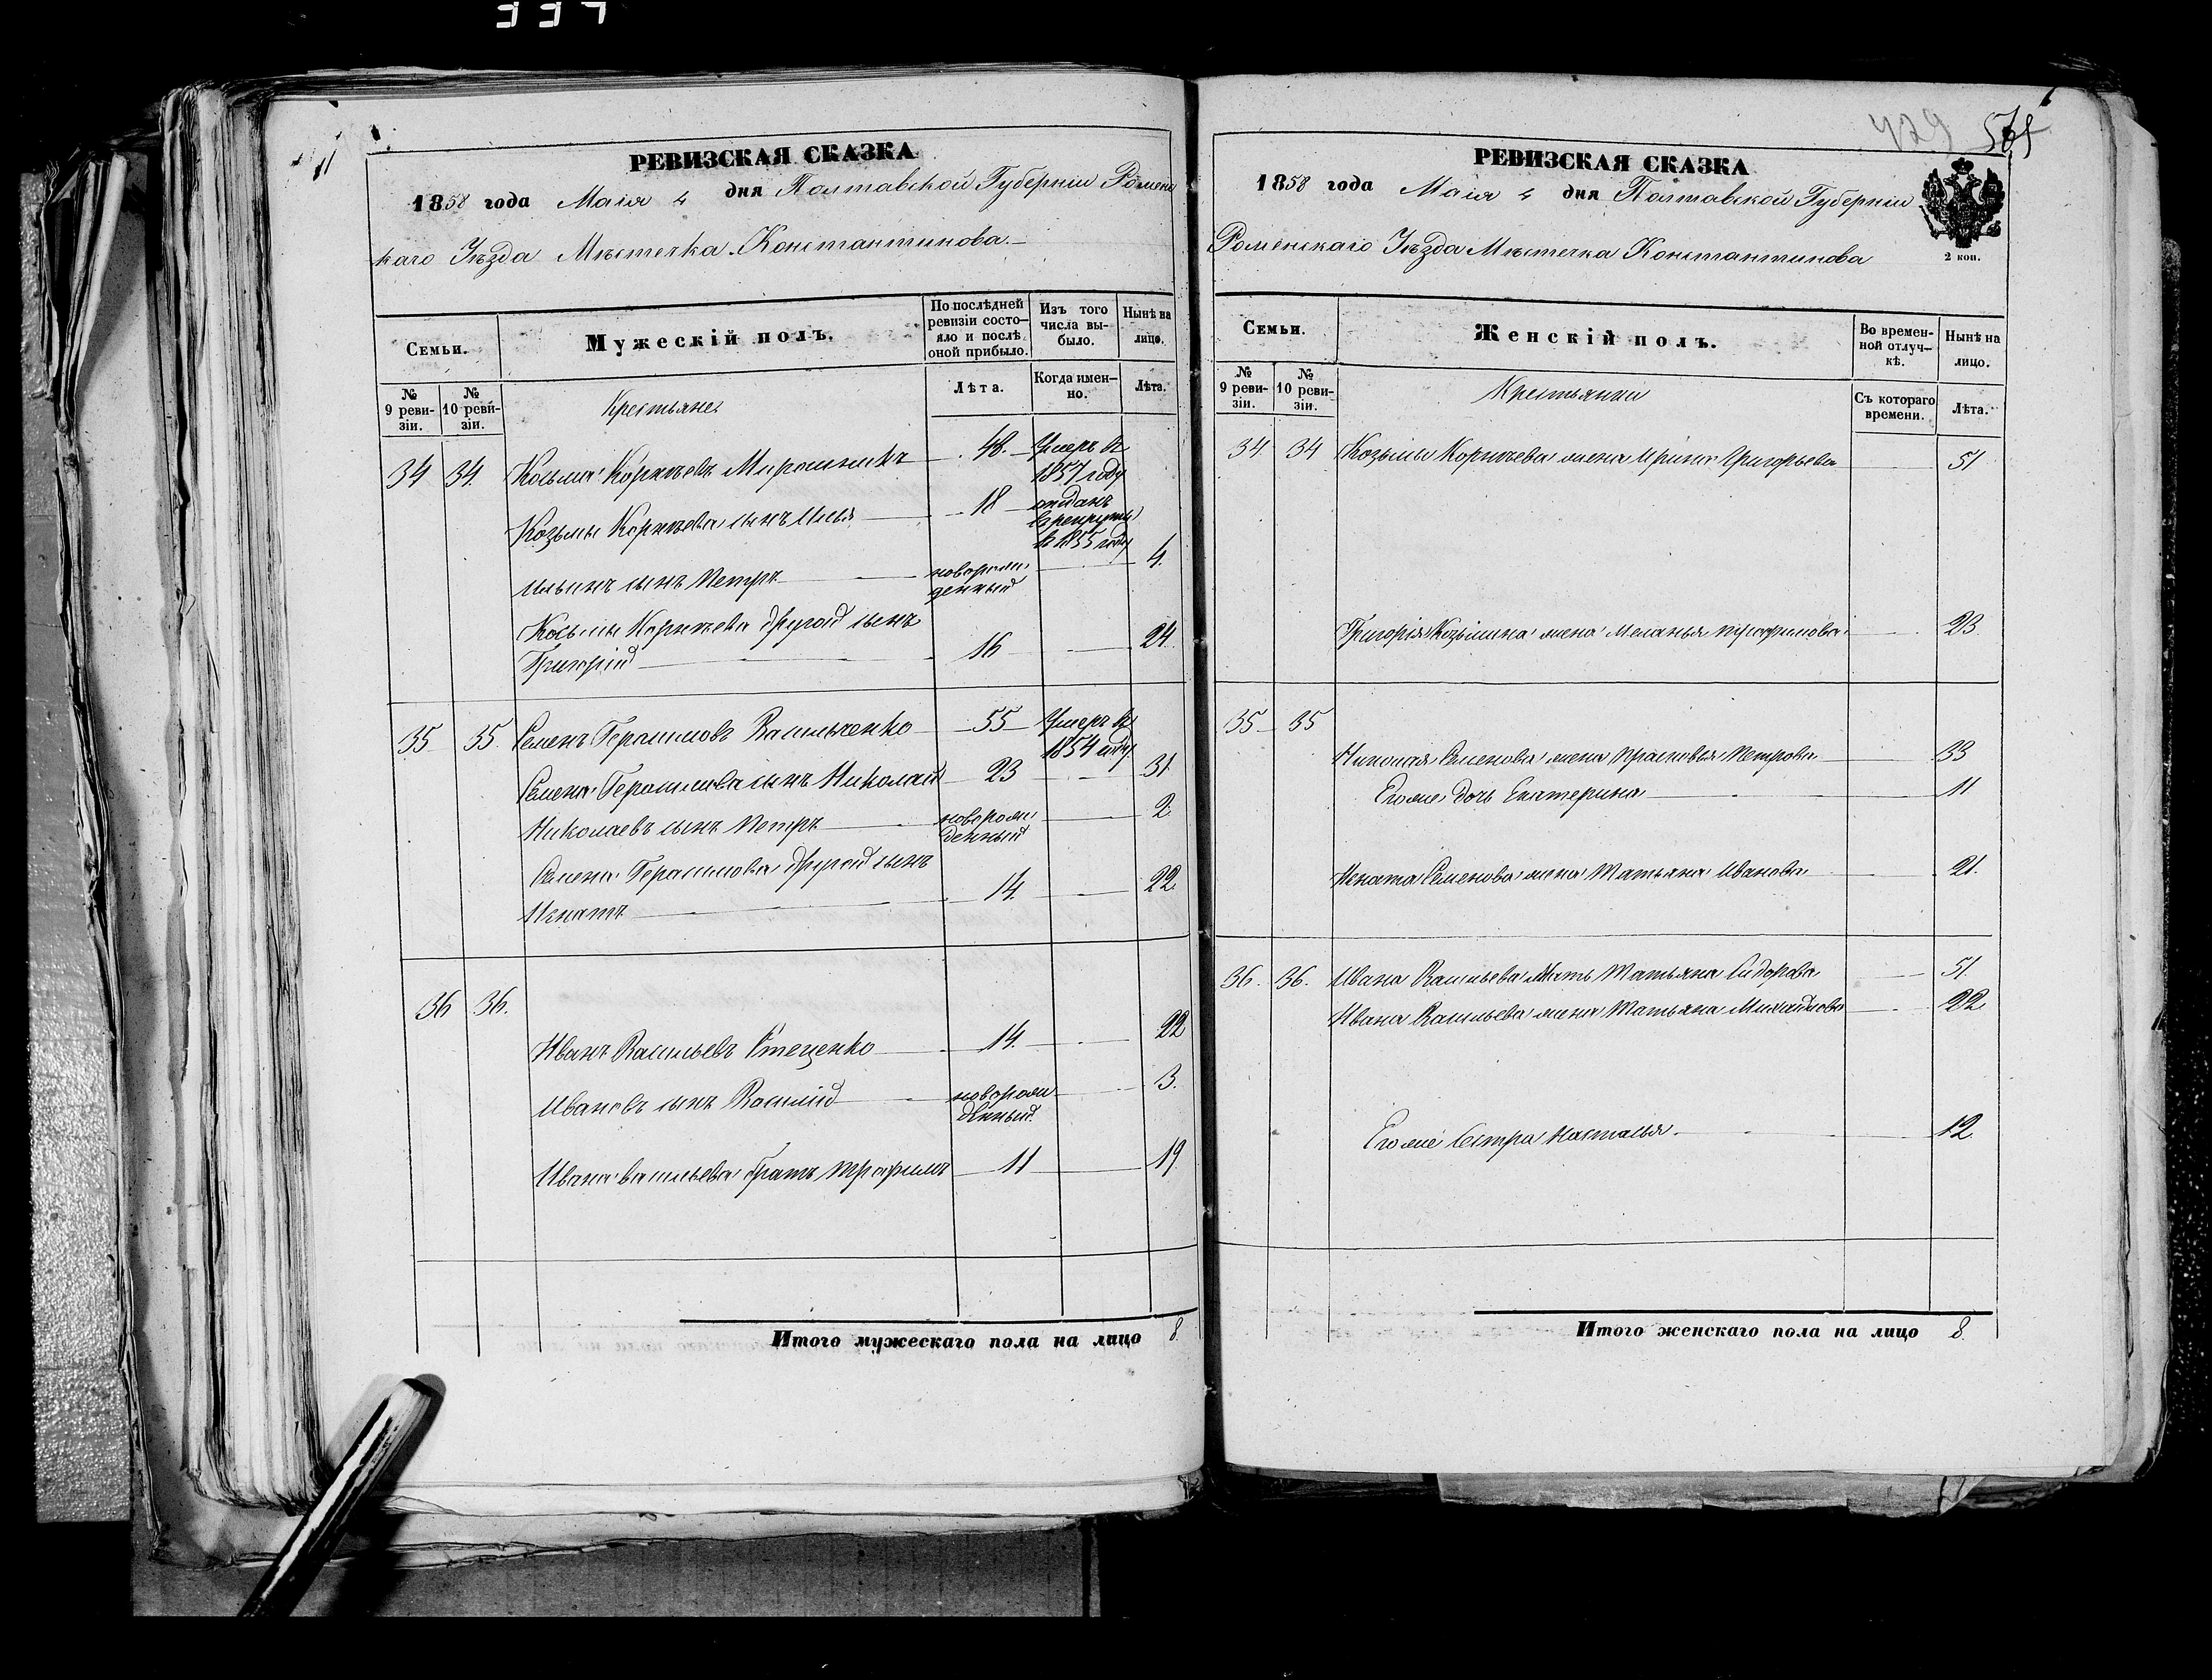 337
РЕВИЗСКАЯ СКАЗКА
1858 года Маія 4 дня Полтавской Губерніи Роменс
каго Уѣзда Мѣстечка Константинова.
Семьи.
Мужескій полъ.
По послѣдней ревизіи состо-яло и послѣ оной прибыло.
Изъ того числа вы-было.
Нынѣ на лицо.
№ 9 реви-зіи.
№ 10 реви-зіи.
Крестьяне
Лѣта.
Когда имен-но.
Лѣта.
34 34. Козьма Корнѣевъ Мирошникъ 48. Умеръ въ
1857 году
Козьмы Корнѣева сынъ Илья 18 отданъ
въ рекруты
в 1855 году
Ильинъ сынъ Петръ новорож 4.
денный
Козьмы Корнѣева другой сынъ
Григорій 16 24.
35 35. Семенъ Герасимовъ Васильченко 55 Умеръ въ
1854 году
Семена Герасимова сынъ Николай 23 31.
Николаевъ сынъ Петръ новорож 2.
денный
Семена Герасимова другой сынъ
Игнатъ 14. 22.
36 36.
Иванъ Васильевъ Стеценко 14. 22
Ивановъ сынъ Василій новорож 3.
денный.
Ивана Васильева братъ Трофимъ 11 19.
Итого мужескаго пола на лицо 8.
429
РЕВИЗСКАЯ СКАЗКА
1858 года Маія 4 дня Полтавской Губерніи
Роменскаго Уѣзда Мѣстечка Константинова
2 коп.
Семьи.
Женскій полъ.
Во времен-ной отлуч-кѣ.
Нынѣ на лицо.
№ 9 реви-зіи.
№ 10 реви-зіи.
Крестьянки
Съ котораго времени.
Лѣта.
34. 34 Козьмы Корнѣева жена Ирина Григорьева 51
Григорія Козьмина жена Меланья Трофимова 23.
35 35
Николая Семенова жена Прасковья Петрова 33
Его же дочь Екатерина 11
Игната Семенова жена Татьяна Иванова 21.
36. 36. Ивана Васильева Мать Татьяна Сидорова 51.
Ивана Васильева жена Татьяна Михайлова 22.
Его же Сестра Наталья 12.
Итого женскаго пола на лицо 8.